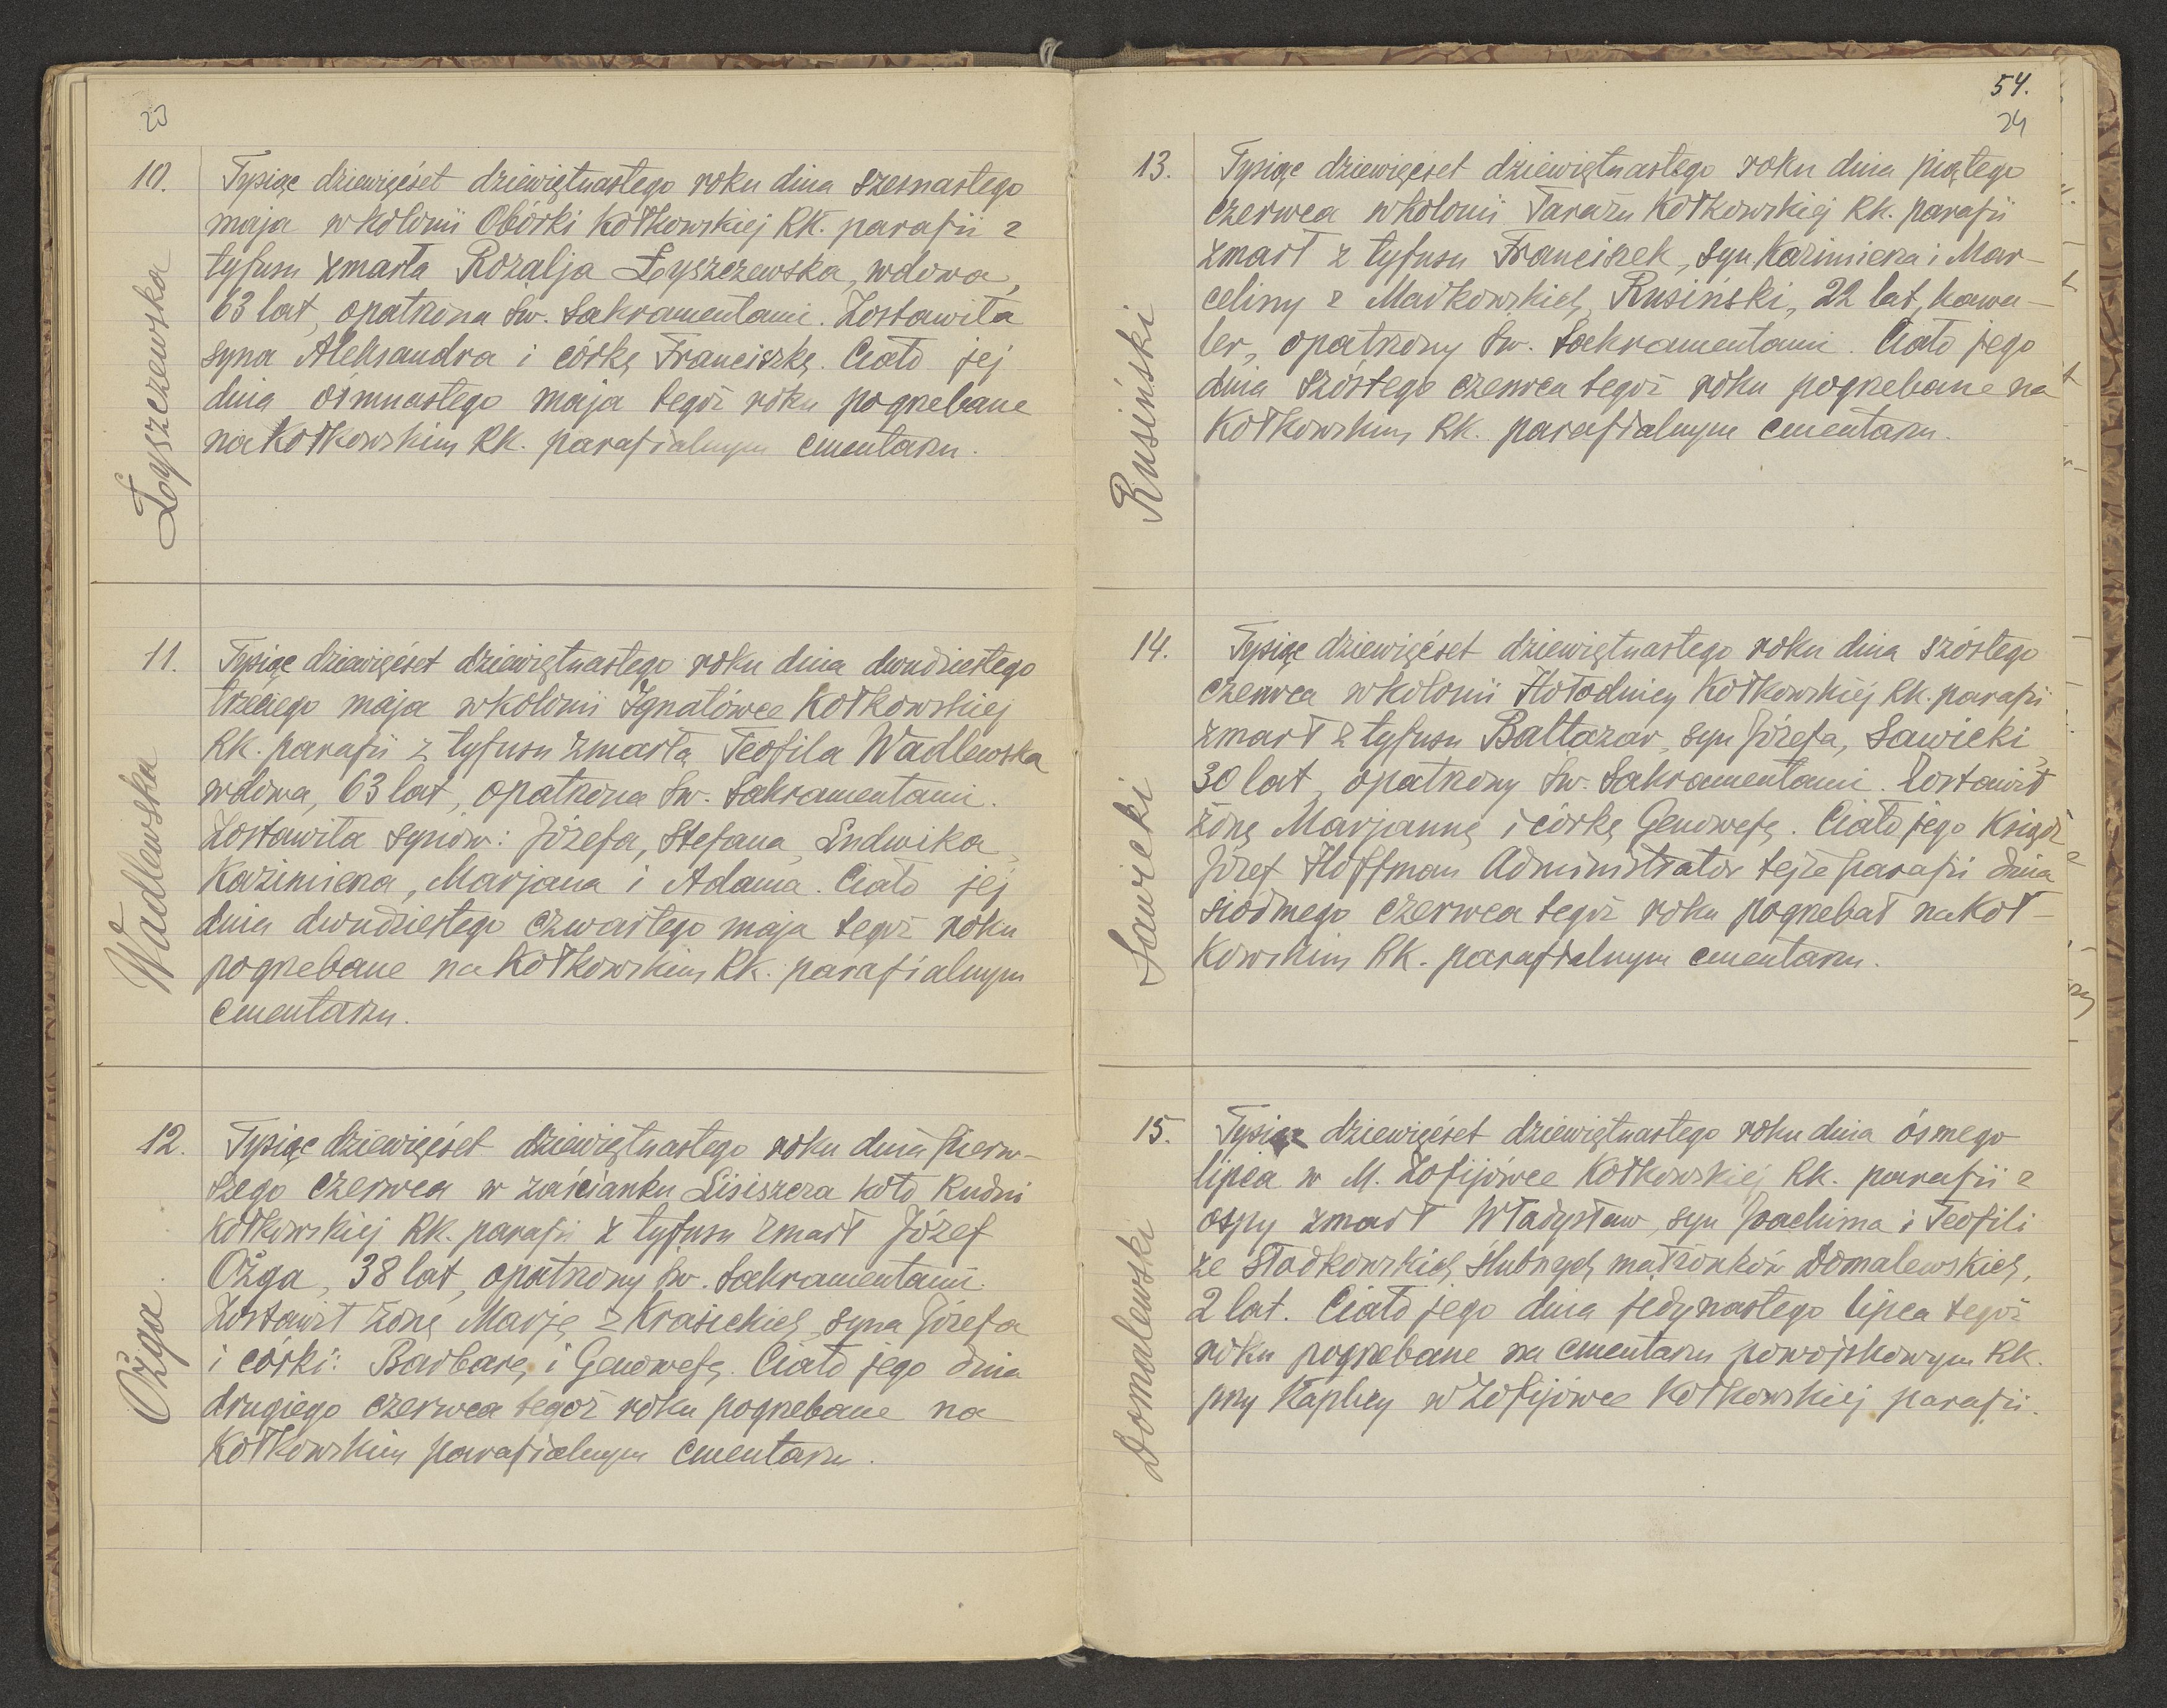 23
10.
Tysiąc dziewięćset dziewiętnastego roku dnia szesnastego
maja w kolonii Obórki Kołkowskiej RK. parafii z
tyfusu zmarła Rozalja Łyszczewska, wdowa,
63 lat, opatrzona Św. Sakramentami. Zostawiła
syna Aleksandra i córkę Franciszkę. Ciało jej
dnia ośmnastego maja tegoż roku pogrzebane
na Kołkowskim RK. parafialnym cmentarzu.
Łyszczewska
11.
Tysiąc dziewięćset dziewiętnastego roku dnia dwudziestego
trzeciego maja w kolonii Ignatówce Kołkowskiej
RK. parafii z tyfusu zmarła Teofila Wadlewska
wdowa, 63 lat, opatrzona Św. Sakramentami.
Zostawiła synów: Józefa, Stefana, Ludwika,
Kazimierza, Marjana i Adama. Ciało jej
dnia dwudziestego czwartego maja tegoż roku
pogrzebane na Kołkowskim RK. parafialnym
cmentarzu.
Wadlewska
12.
Tysiąc dziewięćset dziewiętnastego roku dnia pierw-
szego czerwca w zaścianku Lisiszcza koło Rudni
Kołkowskiej RK. parafii z tyfusu zmarł Józef
Ożga, 38 lat, opatrzony Św. Sakramentami.
Zostawił żonę Marję z Krasickich, syna Józefa
i córki: Barbarę i Genowefę. Ciało jego dnia
drugiego czerwca tegoż roku pogrzebane na
Kołkowskim parafialnym cmentarzu.
Ożga
54.
24
13.
Tysiąc dziewięćset dziewiętnastego roku dnia piątego
czerwca w kolonii Tarażu Kołkowskiej RK. parafii
zmarł z tyfusu Franciszek, syn Kazimierza i Mar-
celiny z Maćkowskich, Rusiński, 22 lat, kawa-
ler, opatrzony Św. Sakramentami. Ciało jego
dnia szóstego czerwca tegoż roku pogrzebane na
Kołkowskim RK. parafialnym cmentarzu.
Rusiński
14.
Tysiąc dziewięćset dziewiętnastego roku dnia szóstego
czerwca w kolonii Hołodnicy Kołkowskiej RK. parafii
zmarł z tyfusu Baltazar, syn Józefa, Sawicki,
30 lat, opatrzony Św. Sakramentami. Zostawił
żonę Marjannę i córkę Genowefę. Ciało jego Ksiądz
Józef Hoffman Administrator tejże parafii dnia
siódmego czerwca tegoż roku pogrzebał na Koł-
kowskim RK. parafialnym cmentarzu.
Sawicki
15.
Tysiąc dziewięćset dziewiętnastego roku dnia ósmego
lipca w M. Zofijówce Kołkowskiej RK. parafii z
ospy zmarł Władysław, syn Joachima i Teofili
ze Sładkowskich, ślubnych małżonków Domalewskich,
2 lat. Ciało jego dnia jedynastego lipca tegoż
roku pogrzebane na cmentarzu powojskowym RK.
przy Kaplicy w Zofijówce Kołkowskiej parafii.
Domalewski